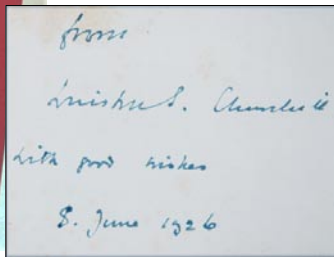 from
Winston S. Churchill
with good wishes
8. June 1926